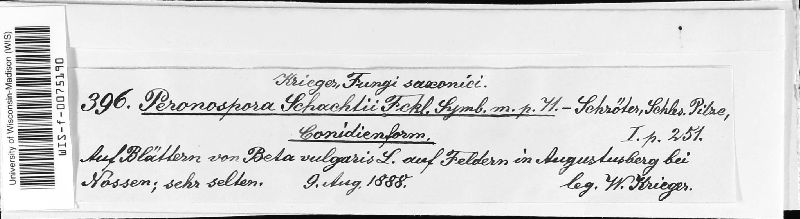 University of Wisconsin-Madison (WIS)
WIS-f-0075190
Krieger, Fungi saxonici.
396. Peronospora Schachtii Fckl. Symb. m. p. 71. – Schröter, Schles. Pilze,
Conidienform. I. p. 251.
Auf Blättern von Beta vulgaris L. auf Feldern in Augustusberg bei
Nossen; sehr selten. 9. Aug. 1888. leg. W. Krieger.